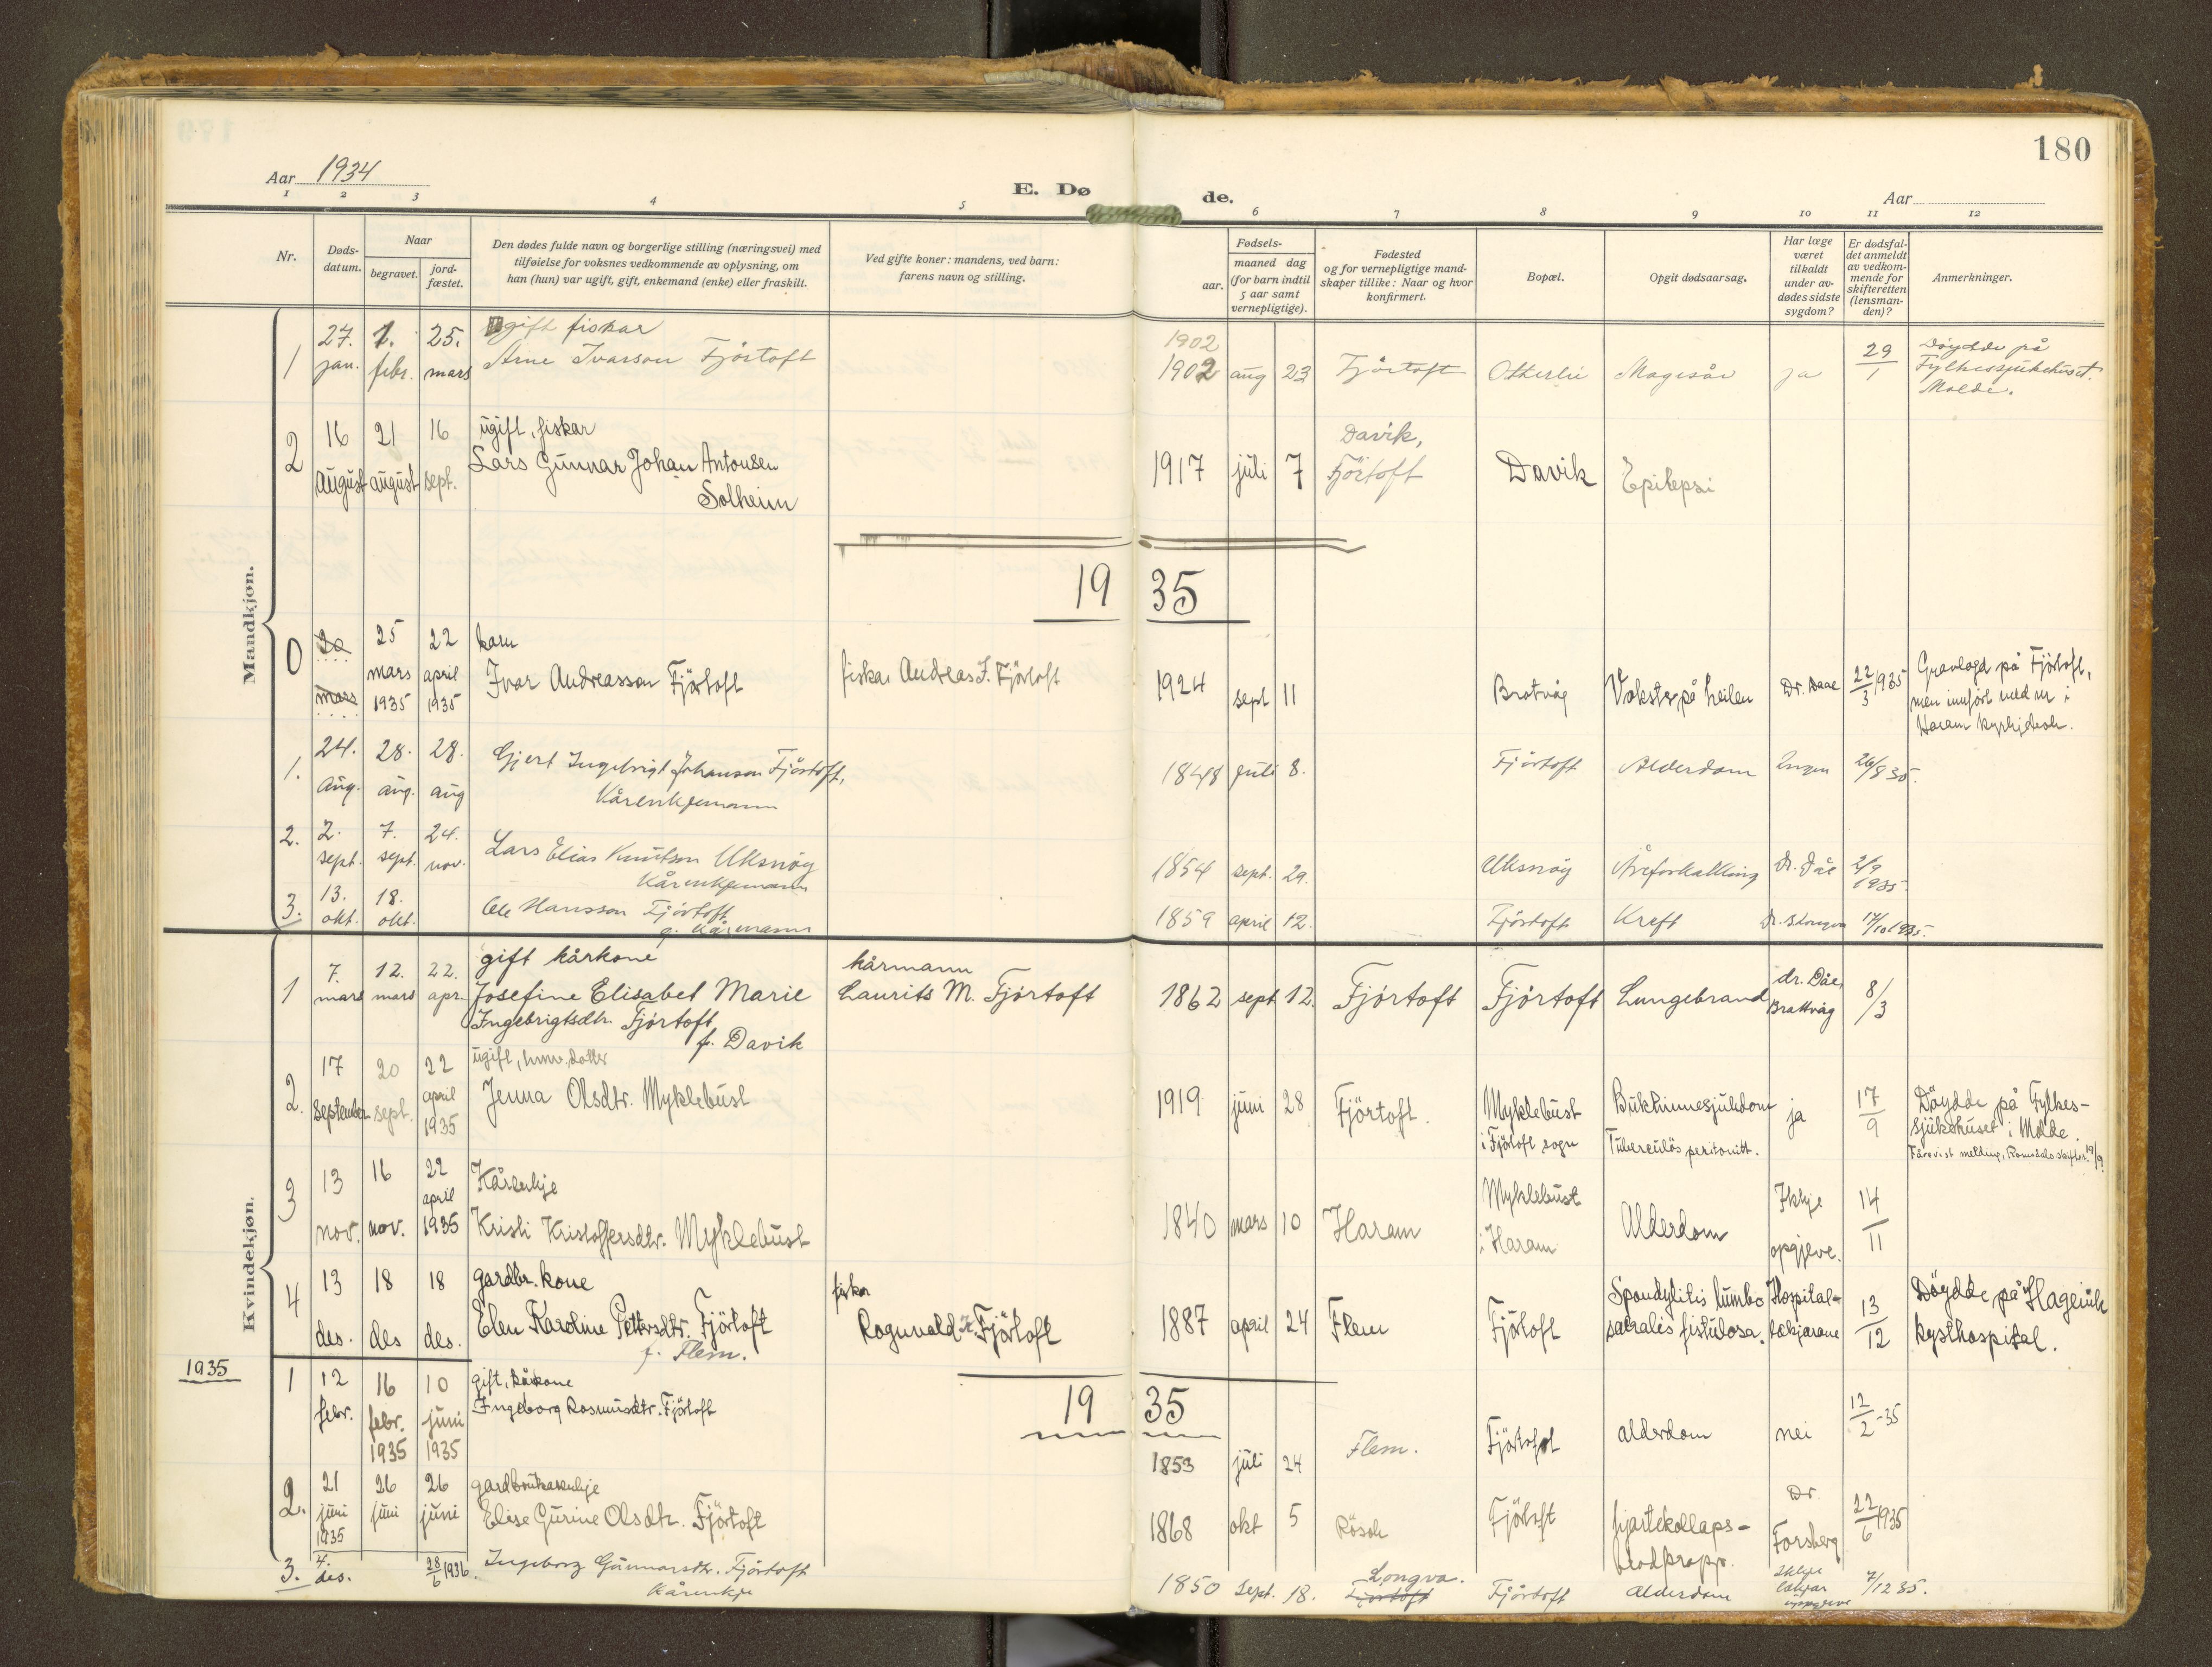 180
Aar 1934
E. Døde.
Aar
1 2 3 4 5 6 7 8 9 10 11 12
Nr.
Døds-datum.
Naar
begravet.
jord-fæstet.
Den dødes fulde navn og borgerlige stilling (næringsvei) med
tilføielse for voksnes vedkommende av oplysning, om
han (hun) var ugift, gift, enkemand (enke) eller fraskilt.
Ved gifte koner: mandens, ved barn:
farens navn og stilling.
Fødsels-
aar.
maaned dag
(for barn indtil
5 aar samt
vernepligtige).
Fødested
og for vernepligtige mand-
skaper tillike: Naar og hvor
konfirmert.
Bopæl.
Opgit dødsaarsag.
Har læge
været
tilkaldt
under av-
dødes sidste
sygdom?
Er dødsfal-
det anmeldt
av vedkom-
mende for
skifteretten
(lensman-
den)?
Anmerkninger.
Mandkjøn.
1 27. jan. 1. febr. 25. mars ugift fiskar
Arne Ivarson Fjörtoft
1902
1902 aug 23 Fjörtoft Otterlei Magesår ja 29/1 Döydde på
Fylkessjukehuset.
Molde.
2 16 august 21 august 16 sept. ugift, fiskar
Lars Gunnar Johan Antonsen
Solheim
1917 juli 7 Davik,
Fjörtoft Davik Epilepsi
1935
0 20 mars 25 mars 1935 22 april 1935 barn
Ivar Andreasson Fjörtoft fiskar Andreas I. Fjörtoft
1924 sept 11 Bratvåg Vokster på heilen Dr. Daae 22/3 1935 Gravlagd på Fjörtoft,
men innfört med nr i
Haram kyrkjebok.
1. 24. aug. 28. aug. 28. aug Gjert Ingebrigt Johanson Fjörtoft,
Kårenkjemann
1848 juli 8. Fjörtoft Alderdom Ingen 26/8 35.
2. 2. sept. 7. sept. 24. nov. Lars Elias Knutson Uksnöy
Kårenkjemann
1854 sept. 29. Uksnöy Åreforkalking Dr. Dåe 2/9 1935.
3. 13. okt. 18. okt. Ole Hansson Fjörtoft
g. Kårmann
1859 april 12. Fjörtoft Kreft 17/10 1935.
Kvindekjøn.
1 7. mars 12. mars 22. apr. gift kårkone
Josefine Elisabet Marie
Ingebrigtsdtr. Fjörtoft
f. Davik
kårmann
Laurits M. Fjörtoft
1862 sept 12. Fjörtoft Fjörtoft Lungebrand dr. Dåe,
Brattvåg 8/3
2. 17 september 20 sept. 22 april 1935 ugift, hmv. dotter
Jenna Olsdtr. Myklebust
1919 juni 28 Fjörtoft. Myklebust
i Fjörtoft sogn Bukhinnesjukdom
Tuberculös peritonitt. ja 17/9 Döydde på Fylkes-
sjukehuset i Molde.
3 13 nov. 16 nov. 22 april 1935 Kårenkje
Kristi Kristoffersdtr. Myklebust
1840 mars 10 Haram Myklebust
i Haram Alderdom Ikkje
opgjeve. 14/11
4 13 des. 18 des 18 des. gardbr. kone
Elen Karoline Pettersdtr. Fjörtoft
f. Flem.
fiskar
Rognvald K. Fjörtoft
1887 april 24 Flem Fjörtoft Spondylitis lumbo
sacralis fistulosa. Hospital-
lækjarane 13/12 Döydde på Hagevik
kysthospital.
1935
1935
1 12 febr. 16 febr. 1935 10 juni 1935 gift, kårkone
Ingeborg Rasmusdtr. Fjörtoft
1853 juli 24 Flem. Fjörtoft alderdom nei 12/2-35
2. 21 juni 1935 26 juni 26 juni gardbrukarenkje
Elise Gurine Olsdtr. Fjörtoft
1868 okt 5 Rösok Fjörtoft hjartekollaps-
blodpropp. Dr.
Forsberg 22/6 1935
3. 4. des. 28/6 1936. Ingeborg Gunnarsdtr. Fjörtoft
Kårenkje
1850 sept. 18. Longva.
Fjörtoft Fjörtoft Alderdom Ikkje
lækjar
uppgjeve 7/12 35.